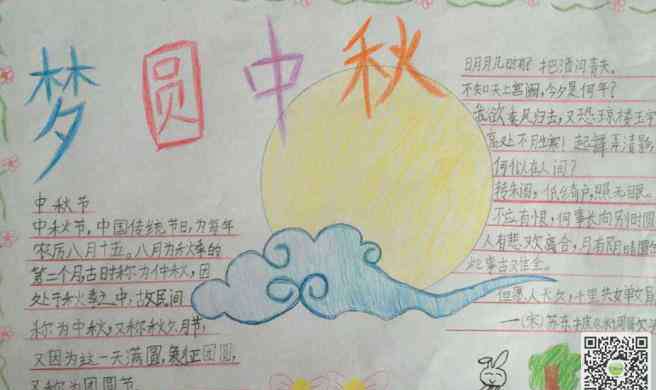 梦圆中秋
中秋节
中秋节，中国传统节日，为每年
农历八月十五。八月为秋季的
第二个月，古时称为仲秋，因
处于秋季之中，故民间
称为中秋，又称秋夕、月节，
又因为这一天满圆，象征团圆，
又称为团圆节。
明月几时有？把酒问青天。
不知天上宫阙，今夕是何年？
我欲乘风归去，又恐琼楼玉宇
高处不胜寒！起舞弄清影，
何似在人间？
转朱阁，低绮户，照无眠。
不应有恨，何事长向别时圆
人有悲欢离合，月有阴晴圆
此事古难全。
但愿人长久，千里共婵娟
—（宋）苏东坡